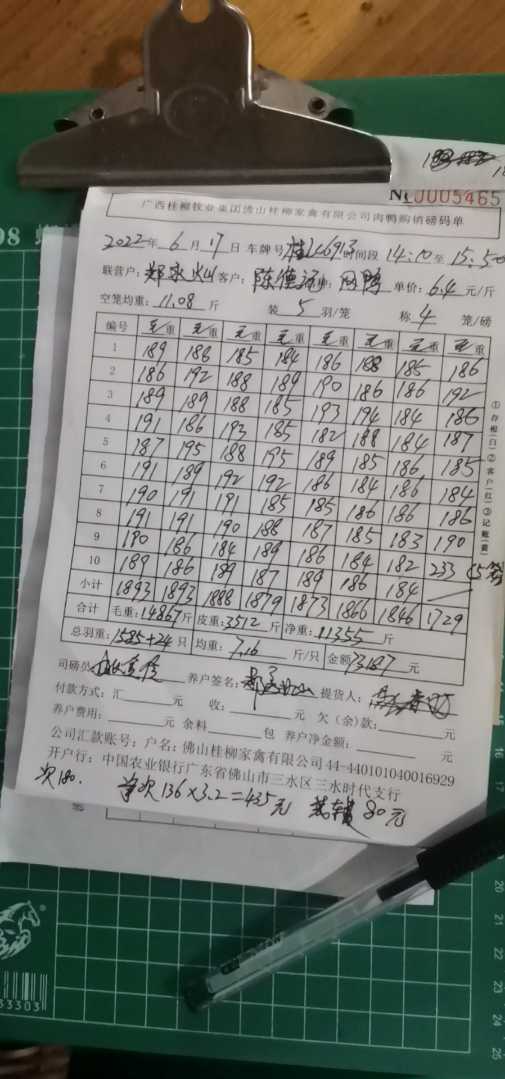 № 0005465
广西桂柳牧业集团佛山桂柳家禽有限公司肉鸭购销磅码单
2022年 6 月 17 日 车牌号 时间段 14:10 至 15:50
联营户: 客户: 单价: 6.4 元/斤
空笼均重: 11.08 斤 装 5 羽/笼 称 4 笼/磅
编号 毛重 毛重 毛重 毛重 毛重 毛重 毛重 毛重
1 189 186 185 184 186 188 185 186
2 186 192 188 189 190 186 186 192
3 189 189 188 185 193 194 184 186
4 191 186 193 185 182 188 184 187
5 187 195 188 195 189 185 186 185
6 191 189 192 192 186 184 186 184
7 190 191 191 185 185 186 186 186
8 191 191 190 188 187 185 183 190
9 190 186 184 189 186 184 182 233
10 189 186 189 187 189 186 184
小计 1893 1893 1888 1879 1873 1866 1846 1729
合计 毛重: 14867 斤 皮重: 3512 斤 净重: 11355 斤
总羽重: 1585+24 只 均重: 7.16 斤/只 金额 元
司磅员 养户签名: 提货人:
付款方式: 汇 元 收: 元 欠(余)款: 元
养户费用: 元 余料 包 养户净金额: 元
公司汇款账号: 户名: 佛山桂柳家禽有限公司 44-440101040016929
开户行: 中国农业银行广东省佛山市三水区三水时代支行
次180. 136×3.2=435元 80元
①存根(白)②客户(红)③记账(黄)
16
17
20
21
22
23
24
25
33303